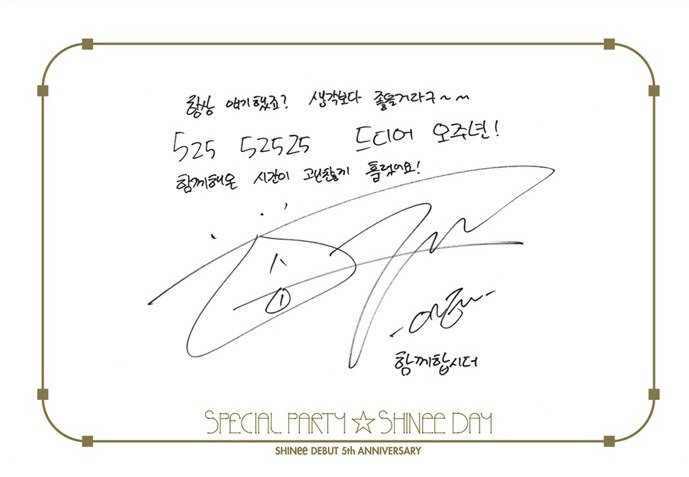 항상 얘기했죠? 생각보다 좋을거라구~~
525 52525 드디어 오주년!
함께해온 시간이 괜찮게 흘렀어요!
함께합시더
SPECIAL PARTY ☆ SHINEE DAY
SHINee DEBUT 5th ANNIVERSARY